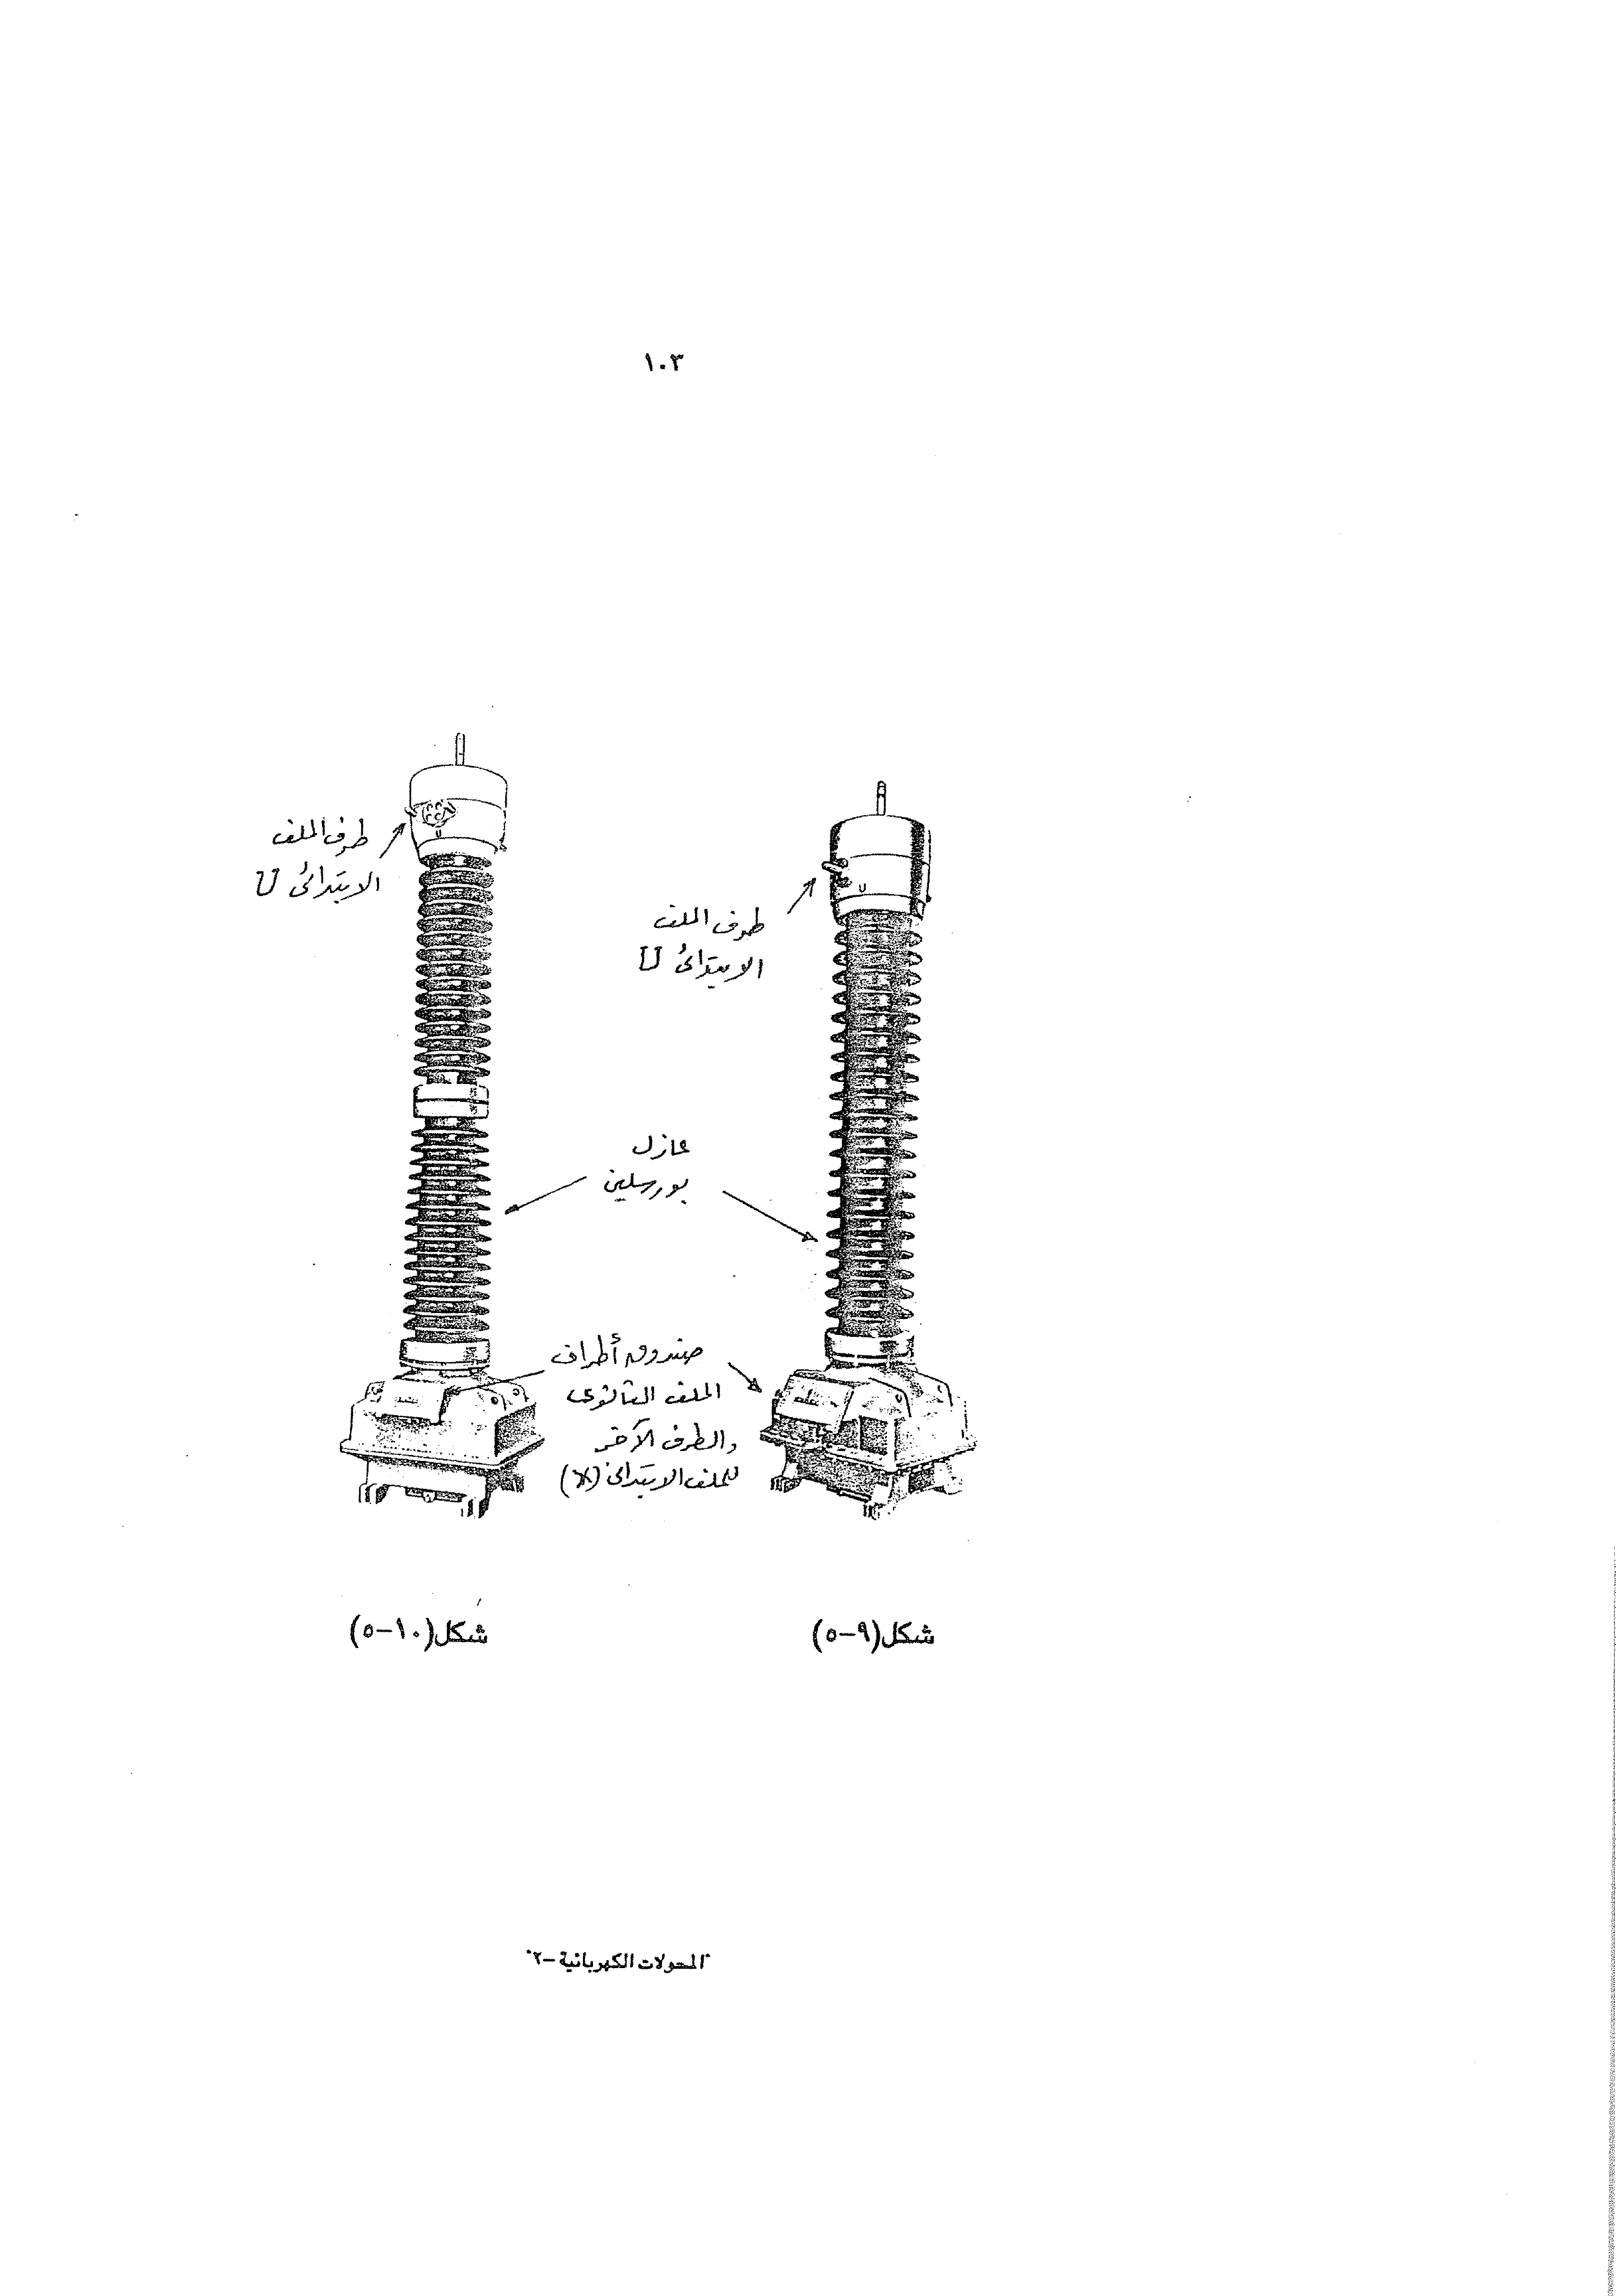 ١٠٣
طرف الملف
الابتدائى U
طرف الملف
الابتدائى U
عازل
بورسلين
صندوق أطراف
الملف الثانوى
والطرف الآخر
للملف الابتدائى (X)
شكل(٩-٥)
شكل(١٠-٥)
المحولات الكهربائية -٢